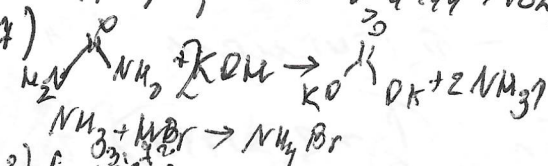 7)
O
H2N NH2 + 2KOH → KO OK + 2NH3↑
NH3 + HBr → NH4Br